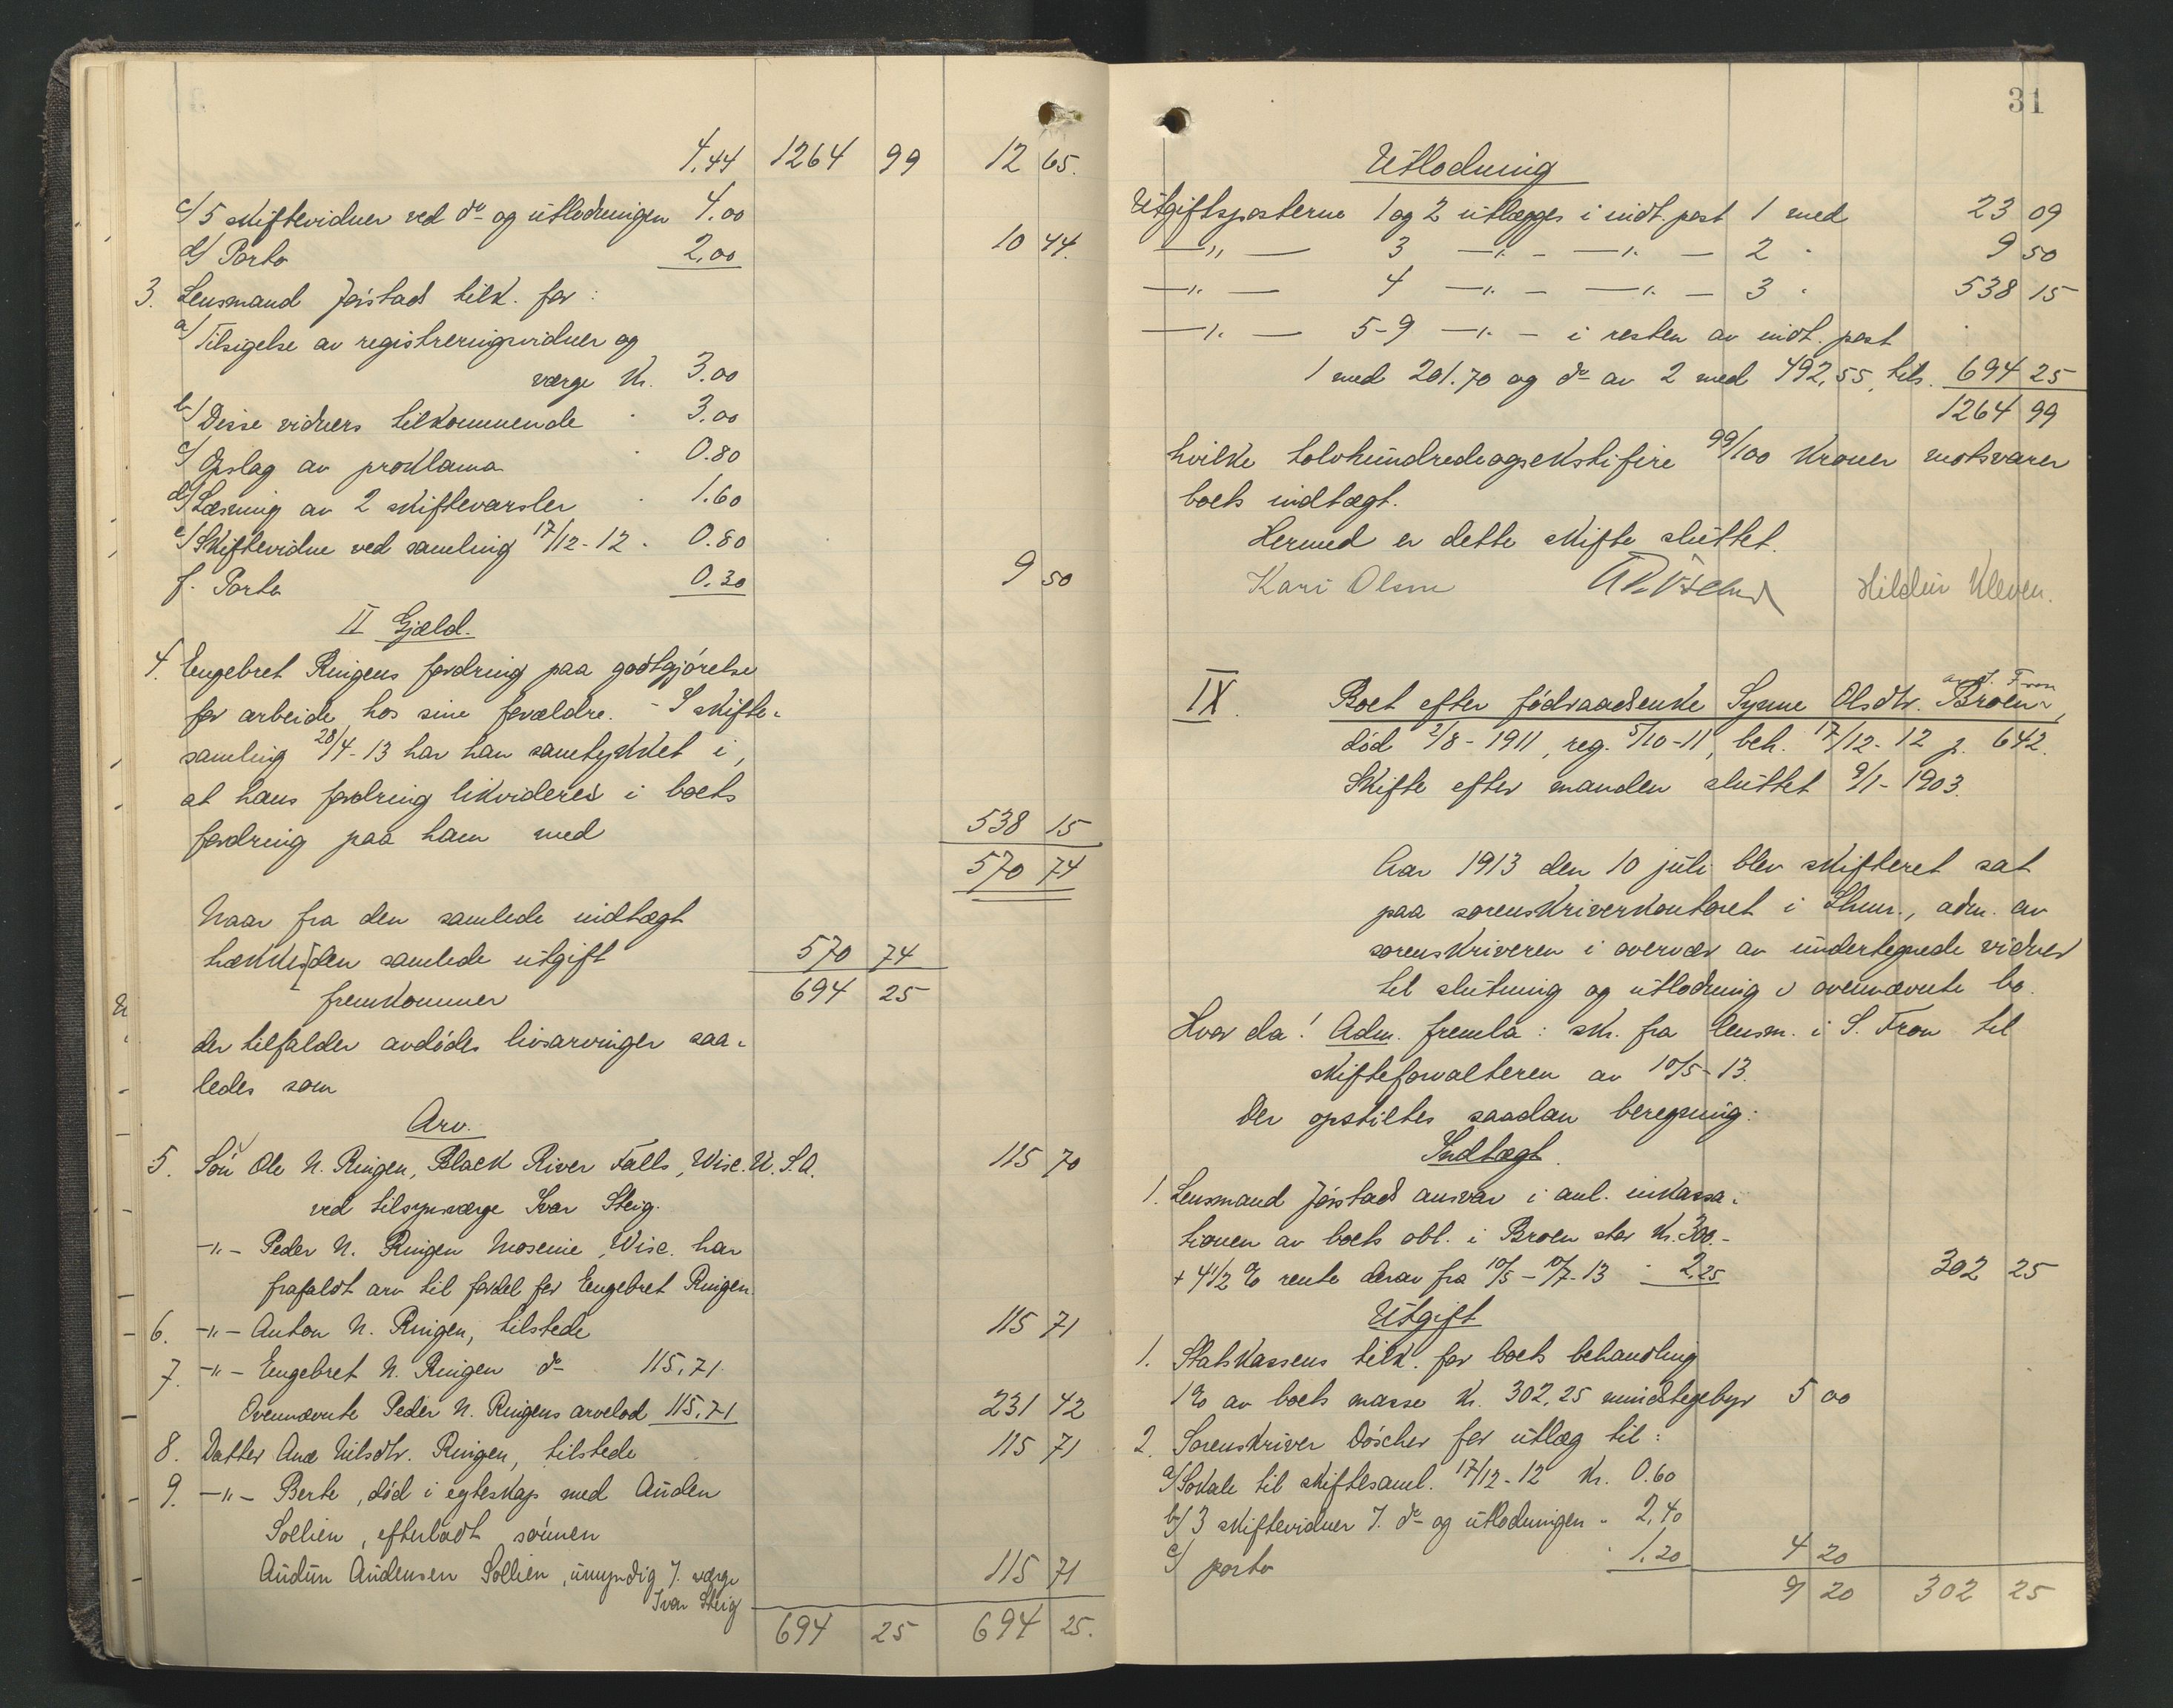 4,44 1264 99 12 65.
c/ 5 skiftevidner ved do og utlodningen 4.00
d/ Porto 2,00 10 44.
3. Lensmand Jørstad tilk. for:
a/ Tilsigelse av registreringsvidner og
værge Kr. 3.00
b/ Disse vidners tilkommende " 3.00
c/ Opslag av proklama " 0.80
d/ Læsning av 2 skiftevarsler " 1.60
e/ Skiftevidne ved samling 17/12-12 " 0.80
f. Porto 0.30 9 50
II Gjæld.
4. Engebret Ringens fordring paa godtgjørelse
for arbeide hos sine forældre. - I skifte-
samling 28/4-13 har han samtykket i,
at hans fordring likvideres i boets
fordring paa ham med 538 15
570 74
Naar fra den samlede indtægt
trækkes den samlede utgift 570 74
fremkommer 694 25
der tilfalder avdødes livsarvinger saa-
ledes som
Arv.
5. Søn Ole N. Ringen, Black River Falls, Wisc. U.S.A. 115 70
ved tilsynsværge Ivar Steig.
-"- Peder N. Ringen Mosenie, Wisc. har
frafaldt arv til fordel for Engebret Ringen.
6. -"- Anton N. Ringen, tilstede 115 71
7. -"- Engebret N. Ringen do 115,71
Ovennævnte Peder N. Ringens arvelod 115,71 231 42
8. Datter Ane Nilsdtr. Ringen, tilstede 115 71
9. -"- Berte, død i egteskap med Auden
Sollien, efterladt sønnen
Audun Audensen Sollien, umyndig f. værge 115 71
Ivar Steig
694 25 694 25.
31
Utlodning
Utgiftsposterne 1 og 2 utlægges i indt. post 1 med 23 09
-"- 3 -"- -"- 2 " 9 50
-"- 4 -"- -"- 3 " 538 15
-"- 5-9 -"- i resten av indt. post
1 med 201.70 og do av 2 med 492,55, tils. 694 25
1264 99
hvilke tolvhundredeogsekstifire 99/100 kroner motsvarer
boets indtægt.
Hermed er dette skifte sluttet.
Kari Olsen Hildur Kleven.
IX. Boet efter fødraadsenke Synne Olsdtr. Broen av S. Fron,
død 2/8-1911, reg. 5/10-11, beh. 17/12-12 p. 642.
Skifte efter manden sluttet 9/1-1903.
Aar 1913 den 10 juli blev skifteret sat
paa sorenskriverkontoret i Lhmr., adm. av
sorenskriveren i overvær av undertegnede vidner
til slutning og utlodning i ovennævnte bo.
Hvor da! Adm. fremla: skr. fra lensm. i S. Fron til
skifteforvalteren av 10/5-13.
Der opstiltes saadan beregning:
Indtægt.
1. Lensmand Jørstads ansvar i anl. inkassa-
tionen av boets obl. i Broen stor kr. 300.-
+ 4 1/2 % rente derav fra 10/5-10/7-13 " 2,25 302 25
Utgift
1. Statskassens tilk. for boets behandling
1% av boets masse kr. 302,25 mindstegebyr 5 00
2. Sorenskriver Döscher for utlæg til:
a/ Lokale til skiftesaml. 17/12-12 kr. 0.60
b/ 3 skiftevidner f. do og utlodningen " 2,40
c/ porto " 1,20 4 20
9 20 302 25